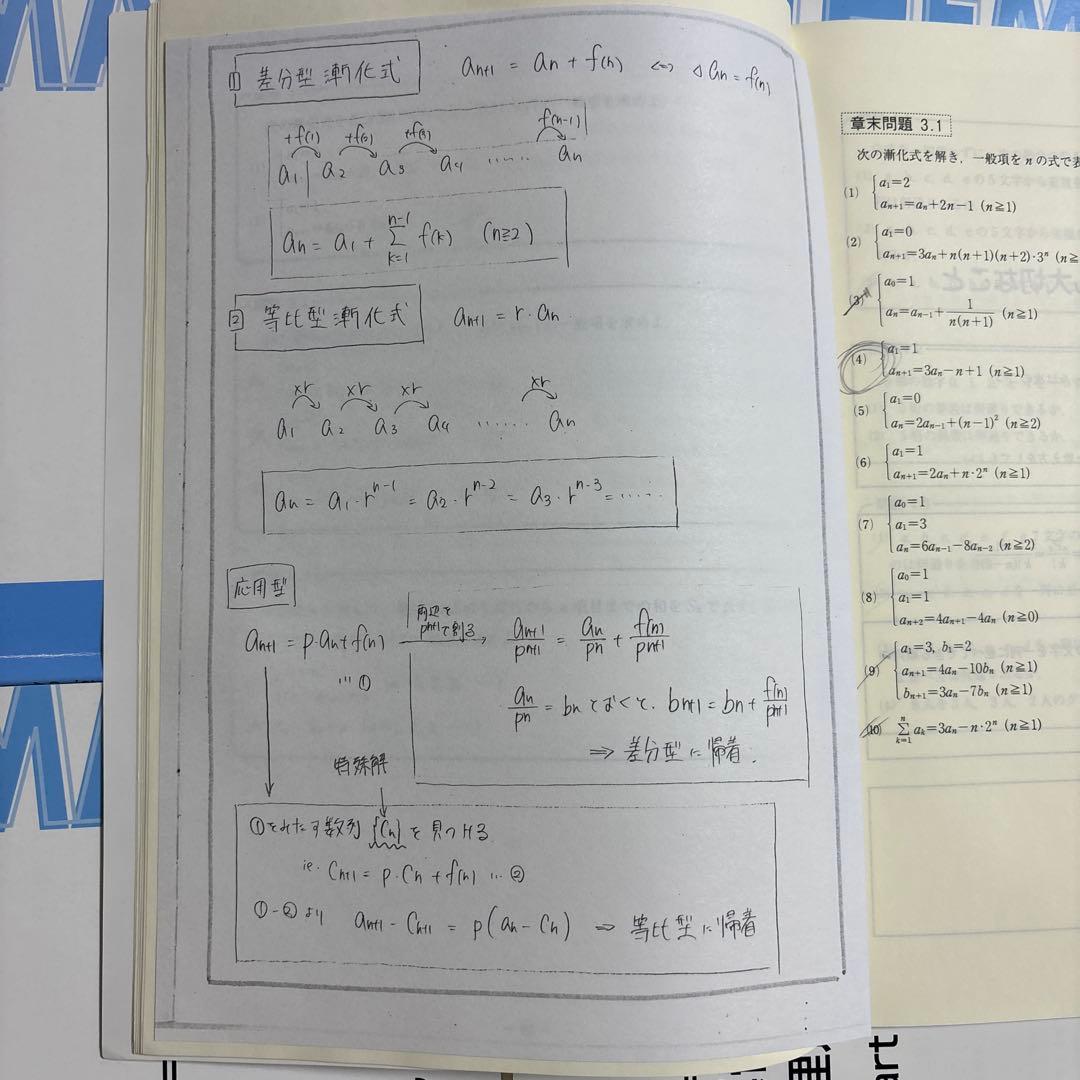 1 差分型漸化式 a_{n+1} = a_n + f(n) ⇔ Δa_n = f(n)
+f(1) +f(2) +f(3) f(n-1)
a_1 a_2 a_3 a_4 ‥‥‥ a_n
a_n = a_1 + Σ_{k=1}^{n-1} f(k) (n≧2)
2 等比型漸化式 a_{n+1} = r・a_n.
×r ×r ×r ×r
a_1 a_2 a_3 a_4 ‥‥‥ a_n
a_n = a_1・r^{n-1} = a_2・r^{n-2} = a_3・r^{n-3} = ‥‥‥
応用型
両辺を
p^{n+1}で割る
a_{n+1} = p・a_n + f(n) → a_{n+1}/p^{n+1} = a_n/p^n + f(n)/p^{n+1}
…①
a_n/p^n = b_n とおくと、b_{n+1} = b_n + f(n)/p^{n+1}
⇒ 差分型に帰着.
特殊解
①をみたす数列 {C_n} を見つける
ie. C_{n+1} = p・C_n + f(n) … ②
①-②より a_{n+1} - C_{n+1} = p(a_n - C_n) ⇒ 等比型に帰着
章末問題 3.1
次の漸化式を解き，一般項を n の式で表
(1) a_1=2
a_{n+1}=a_n+2n-1 (n≧1)
(2) a_1=0
a_{n+1}=3a_n+n(n+1)(n+2)・3^n (n≧
(3) a_0=1
a_n=a_{n-1}+1/n(n+1) (n≧1)
(4) a_1=1
a_{n+1}=3a_n-n+1 (n≧1)
(5) a_1=0
a_n=2a_{n-1}+(n-1)^2 (n≧2)
(6) a_1=1
a_{n+1}=2a_n+n・2^n (n≧1)
(7) a_0=1
a_1=3
a_n=6a_{n-1}-8a_{n-2} (n≧2)
(8) a_0=1
a_1=1
a_{n+2}=4a_{n+1}-4a_n (n≧0)
(9) a_1=3, b_1=2
a_{n+1}=4a_n-10b_n (n≧1)
b_{n+1}=3a_n-7b_n (n≧1)
(10) Σ_{k=1}^{n} a_k=3a_n-n・2^n (n≧1)
art